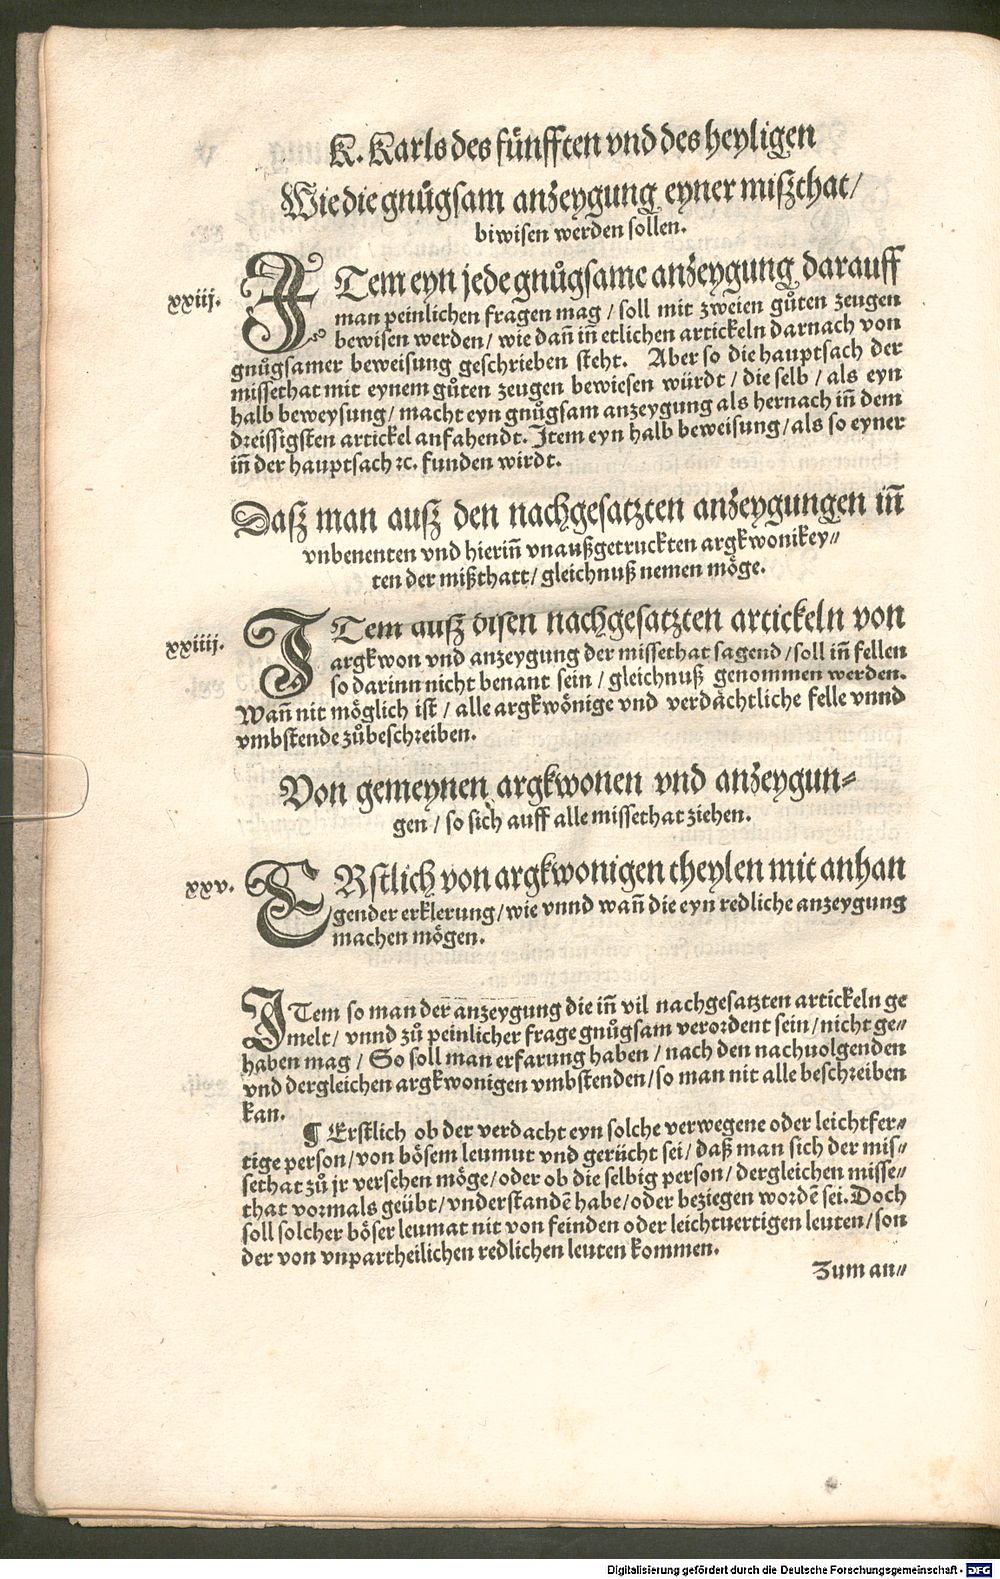 K. Karls des fünfften vnd des heyligen
Wie die gnůgsam anzeygung eyner mißthat/
biwisen werden sollen.
xxiij.
ITem eyn jede gnůgsame anzeygung darauff
man peinlichen fragen mag / soll mit zweien gůten zeugen
bewisen werden / wie dañ iñ etlichen artickeln darnach von
gnůgsamer beweisung geschrieben steht. Aber so die hauptsach der
missethat mit eynem gůten zeugen bewiesen würdt / die selb / als eyn
halb beweysung / macht eyn gnůgsam anzeygung als hernach iñ dem
dreissigsten artickel anfahendt. Item eyn halb beweisung / als so eyner
iñ der hauptsach ꝛc. funden wirdt.
Daß man auß den nachgesatzten anzeygungen iñ
vnbenenten vnd hieriñ vnaußgetruckten argkwonikey⸗
ten der mißthatt / gleichnuß nemen möge.
xxiiij.
ITem auß disen nachgesatzten artickeln von
argkwon vnd anzeygung der missethat sagend / soll iñ fellen
so darinn nicht benant sein / gleichnuß genommen werden.
Wañ nit möglich ist / alle argkwönige vnd verdächtliche felle vnnd
vmbstende zůbeschreiben.
Von gemeynen argkwonen vnd anzeygun⸗
gen / so sich auff alle missethat ziehen.
xxv.
ERstlich von argkwonigen theylen mit anhan
gender erklerung / wie vnnd wañ die eyn redliche anzeygung
machen mögen.
ITem so man der anzeygung die iñ vil nachgesatzten artickeln ge
melt / vnnd zů peinlicher frage gnůgsam verordent sein / nicht ge⸗
haben mag / So soll man erfarung haben / nach den nachuolgenden
vnd dergleichen argkwonigen vmbstenden / so man nit alle beschreiben
kan.
¶ Erstlich ob der verdacht eyn solche verwegene oder leichtfer⸗
tige person / von bösem leumut vnd gerücht sei / daß man sich der mis⸗
sethat zů jr versehen möge / oder ob die selbig person / dergleichen misse⸗
that vormals geübt / vnderstandē habe / oder beziegen wordē sei. Doch
soll solcher böser leumat nit von feinden oder leichtuertigen leuten / son
der von vnpartheilichen redlichen leuten kommen.
Zum an⸗
Digitalisierung gefördert durch die Deutsche Forschungsgemeinschaft - DFG